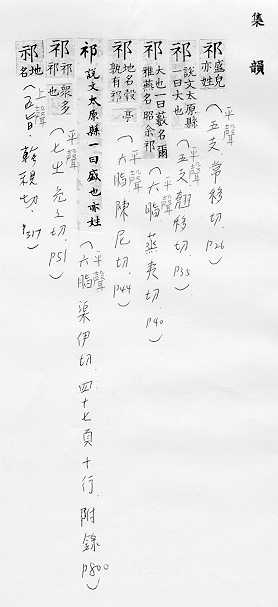 集韻
祁 盛皃亦姓 平聲 (五支 常移切. p26)
祁 說文太原縣一曰大也 平聲 (五支 翹移切. p35)
祁 大也一曰藪名爾雅燕名昭余祁 平聲 (六脂 蒸夷切. p40)
祁 地名穀亭孰有祁 平聲 (六脂 陳尼切. p44)
祁 說文太原縣一曰盛也亦姓 平聲 (六脂 渠伊切. 四十七頁十行. 附錄 p800)
祁 祁祁眾多也 平聲 (七之 切. p51)
祁 地名 上聲 (五旨 軫視切. p317)